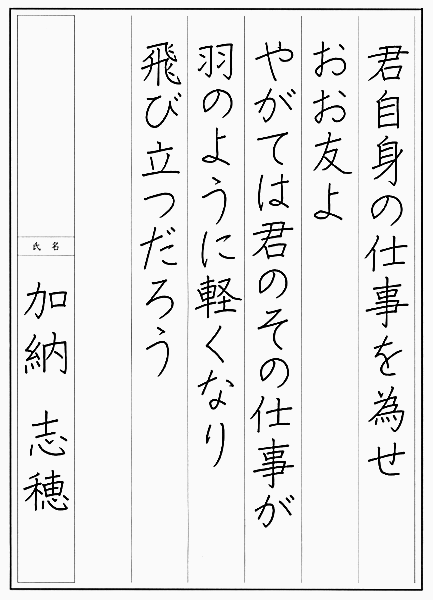 君自身の仕事を為せ
おお友よ
やがては君のその仕事が
羽のように軽くなり
飛び立つだろう
氏名
加納 志穂